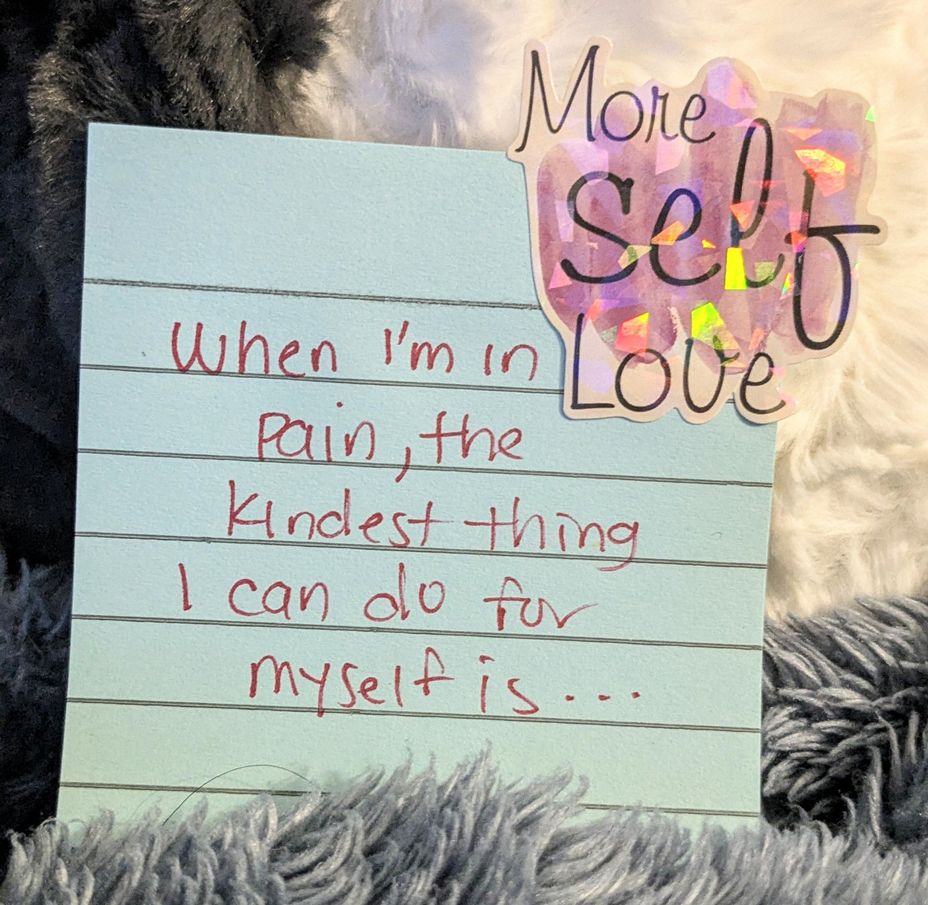 More
Self
Love
When I'm in
Pain, the
kindest thing
I can do for
myself is...